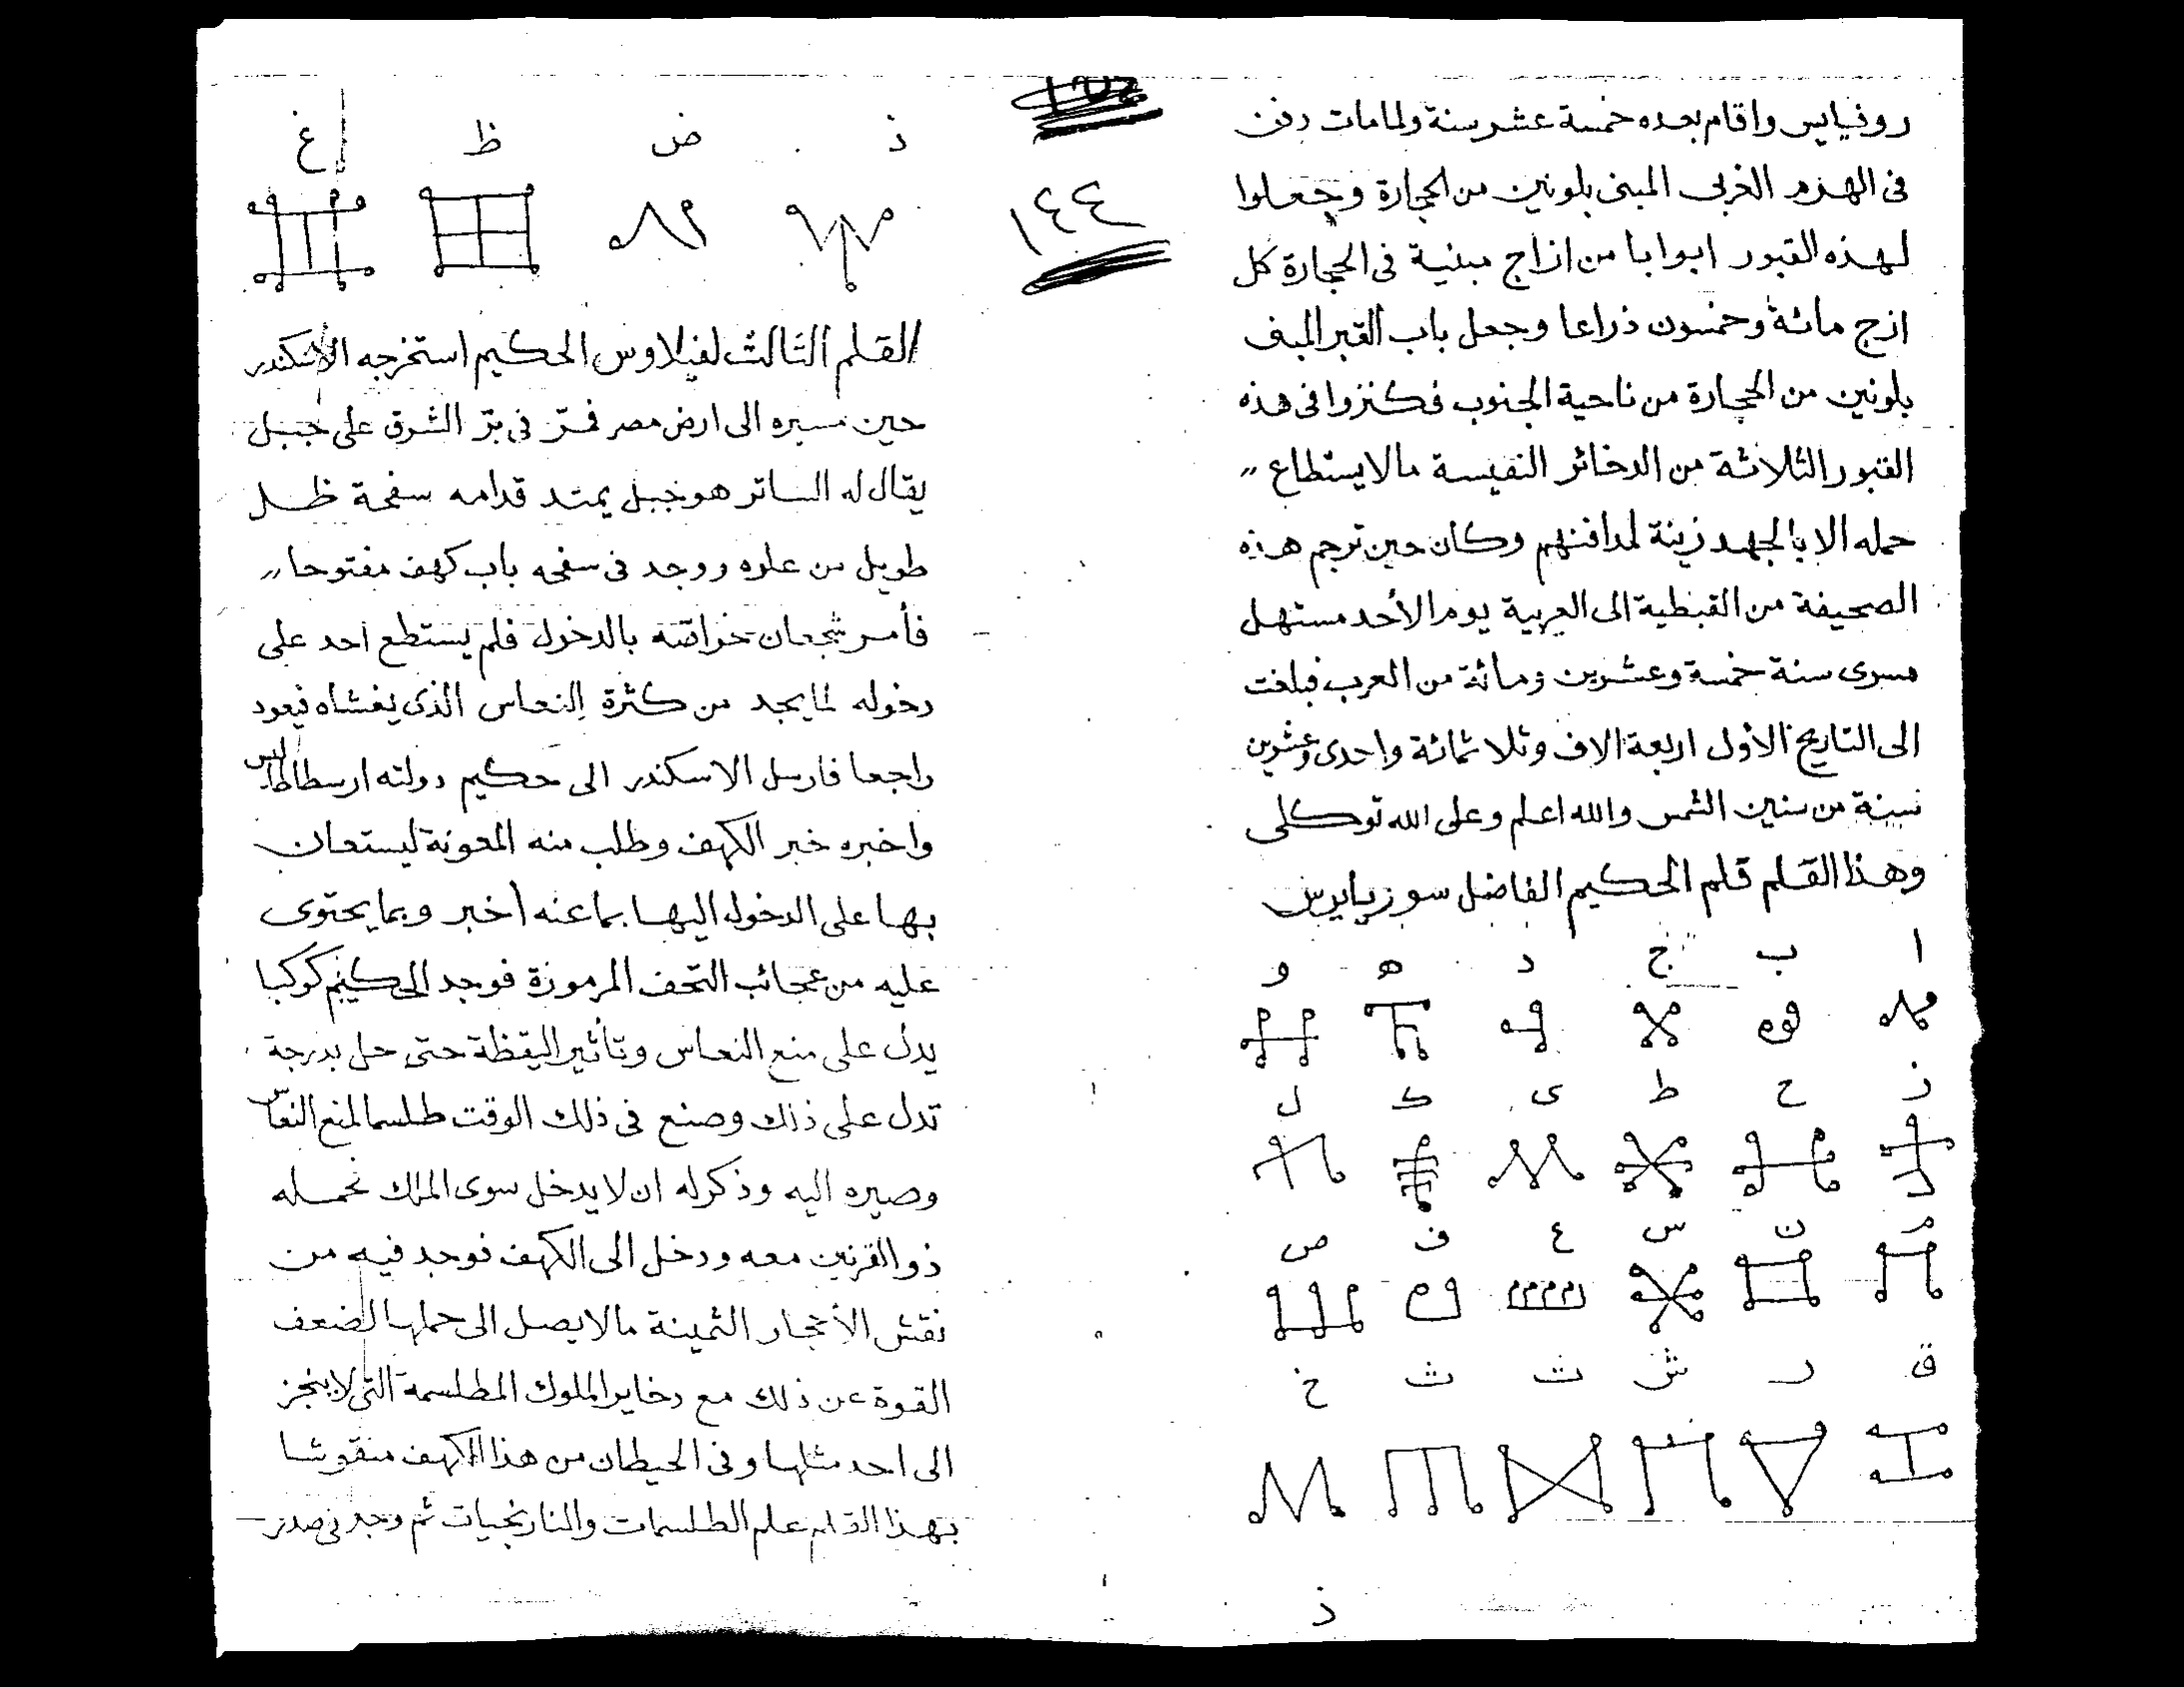 روفيايس واقام بعده خمسة عشر سنة ولما مات دفن
فى الهرم الغربى المبنى بلونين من الحجارة وجعلوا
لهذه القبور ابوابا من ازاج مبنية فى الحجارة كل
ازج مائة وخمسون ذراعا وجعل باب القبر المبنى
بلونين من الحجارة من ناحية الجنوب فكنزوا فى هذه
القبور الثلاثة من الدخائر النفيسة مالا يستطاع
حمله الا بالجهد زينة لمدافنهم وكان حين ترجم هذه
الصحيفة من القبطية الى العربية يوم الأحد مستهل
مسرى سنة خمسة وعشرين ومائة من العرب فبلغت
الى التاريخ الأول اربعة الاف وثلاثمائة واحدى وعشرين
سنة من سنين الشمس والله اعلم وعلى الله توكلى
وهذا القلم قلم الحكيم الفاضل سوزيايرس
ا ب ج د ه و
ز ح ط ى ك ل
م ن س ع ف ص
ق ر ش ت ث خ
ذ
١٤٤
ذ ض ظ غ
القلم الثالث لفيلاوس الحكيم استخرجه الاسكندر
حين مسيره الى ارض مصر فمرّ فى برّ الشرق على جبل
يقال له الساتر هو جبل يمتد قدامه سفحة ظل
طويل من علوه ووجد فى سفحه باب كهف مفتوحا
فأمر شجعان خواصه بالدخول فلم يستطع احد على
دخوله لما يجد من كثرة النعاس الذى يغشاه فيعود
راجعا فارسل الاسكندر الى حكيم دولته ارسطاطاليس
واخبره خبر الكهف وطلب منه المعونة ليستعان
بها على الدخول اليها بما عنه أخبر وبما يحتوى
عليه من عجائب التحف المرموزة فوجد الحكيم كوكبا
يدل على منع النعاس وتأثير اليقظة حتى حل بدرجة
تدل على ذلك وصنع فى ذلك الوقت طلسما لمنع النعاس
وصيره اليه وذكر له ان لا يدخل سوى الملك فحمله
ذو القرنين معه ودخل الى الكهف فوجد فيه من
نقش الأحجار الثمينة مالا يصل الى حملها لضعف
القوة عن ذلك مع دخاير الملوك المطلسمة التى لا ينجز
الى احد مثلها وفى الحيطان من هذا الكهف منقوشا
بهذا القلم علم الطلسمات والنارنجيات ثم وجد فى صدر